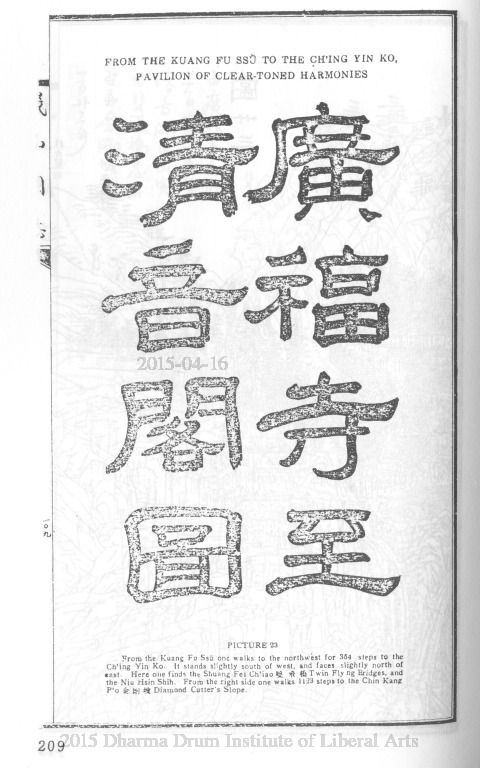 FROM THE KUANG FU SSŬ TO THE CH'ING YIN KO,
PAVILION OF CLEAR-TONED HARMONIES
廣福寺至
清音閣圖
2015-04-16
PICTURE 23
From the Kuang Fu Ssŭ one walks to the northwest for 364 steps to the
Ch'ing Yin Ko. It stands slightly south of west, and faces slightly north of
east. Here one finds the Shuang Fei Ch'iao 雙飛橋 Twin Flying Bridges, and
the Niu Hsin Shih. From the right side one walks 1123 steps to the Chin Kang
P'o 金剛坡 Diamond Cutter's Slope.
209
2015 Dharma Drum Institute of Liberal Arts